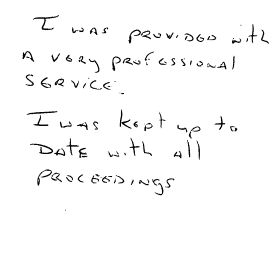 I was provided with
A very professional
service.
I was kept up to
Date with all
proceedings